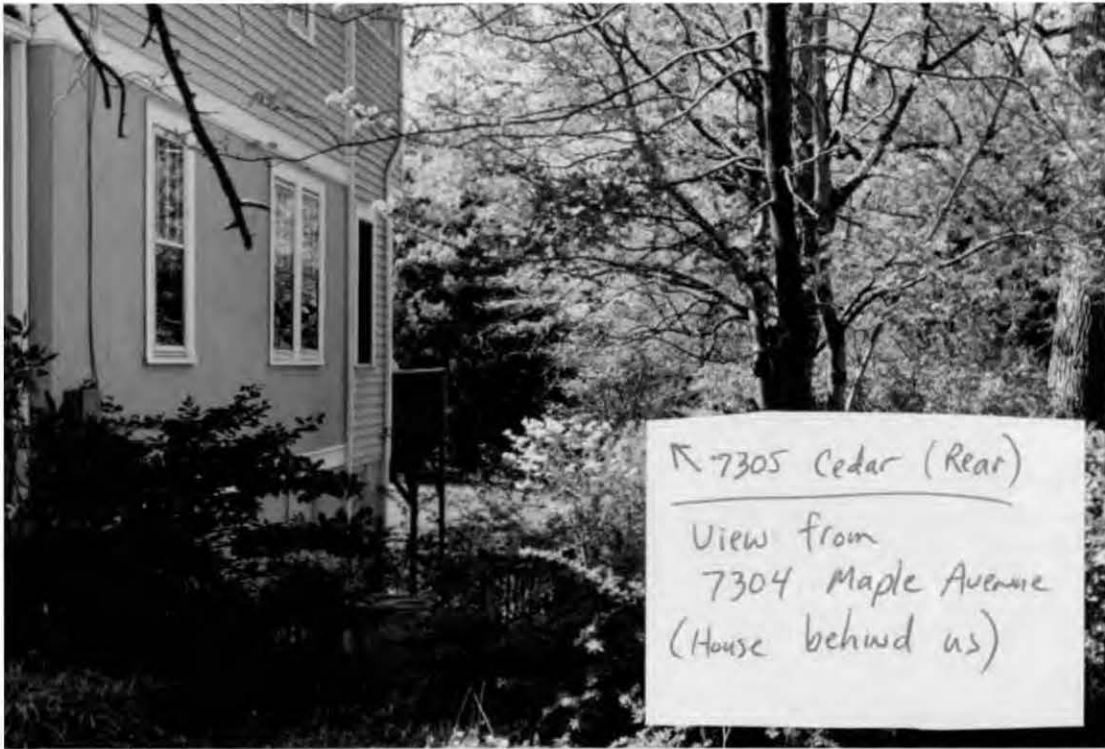 ↖ 7305 Cedar (Rear)
View from
7304 Maple Avenue
(House behind us)